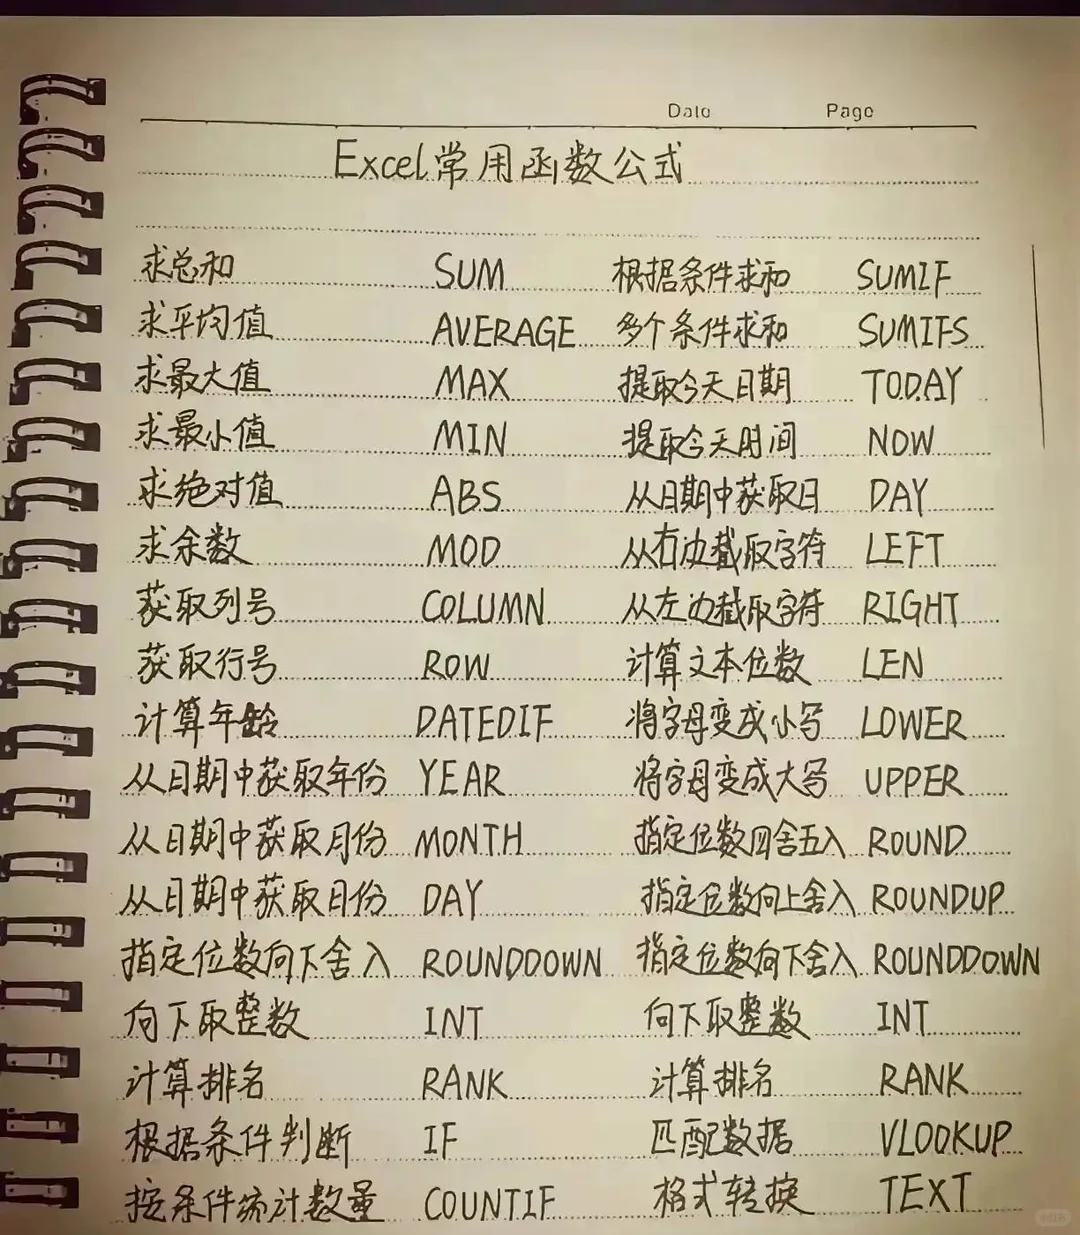 Date Page
Excel常用函数公式
求总和 SUM 根据条件求和 SUMIF
求平均值 AVERAGE 多个条件求和 SUMIFS
求最大值 MAX 提取今天日期 TODAY
求最小值 MIN 提取今天时间 NOW
求绝对值 ABS 从日期中获取日 DAY
求余数 MOD 从右边截取字符 LEFT
获取列号 COLUMN 从左边截取字符 RIGHT
获取行号 ROW 计算文本位数 LEN
计算年龄 DATEDIF 将字母变成小写 LOWER
从日期中获取年份 YEAR 将字母变成大写 UPPER
从日期中获取月份 MONTH 指定位数四舍五入 ROUND
从日期中获取日份 DAY 指定位数向上舍入 ROUNDUP
指定位数向下舍入 ROUNDDOWN 指定位数向下舍入 ROUNDDOWN
向下取整数 INT 向下取整数 INT
计算排名 RANK 计算排名 RANK
根据条件判断 IF 匹配数据 VLOOKUP
按条件统计数量 COUNTIF 格式转换 TEXT